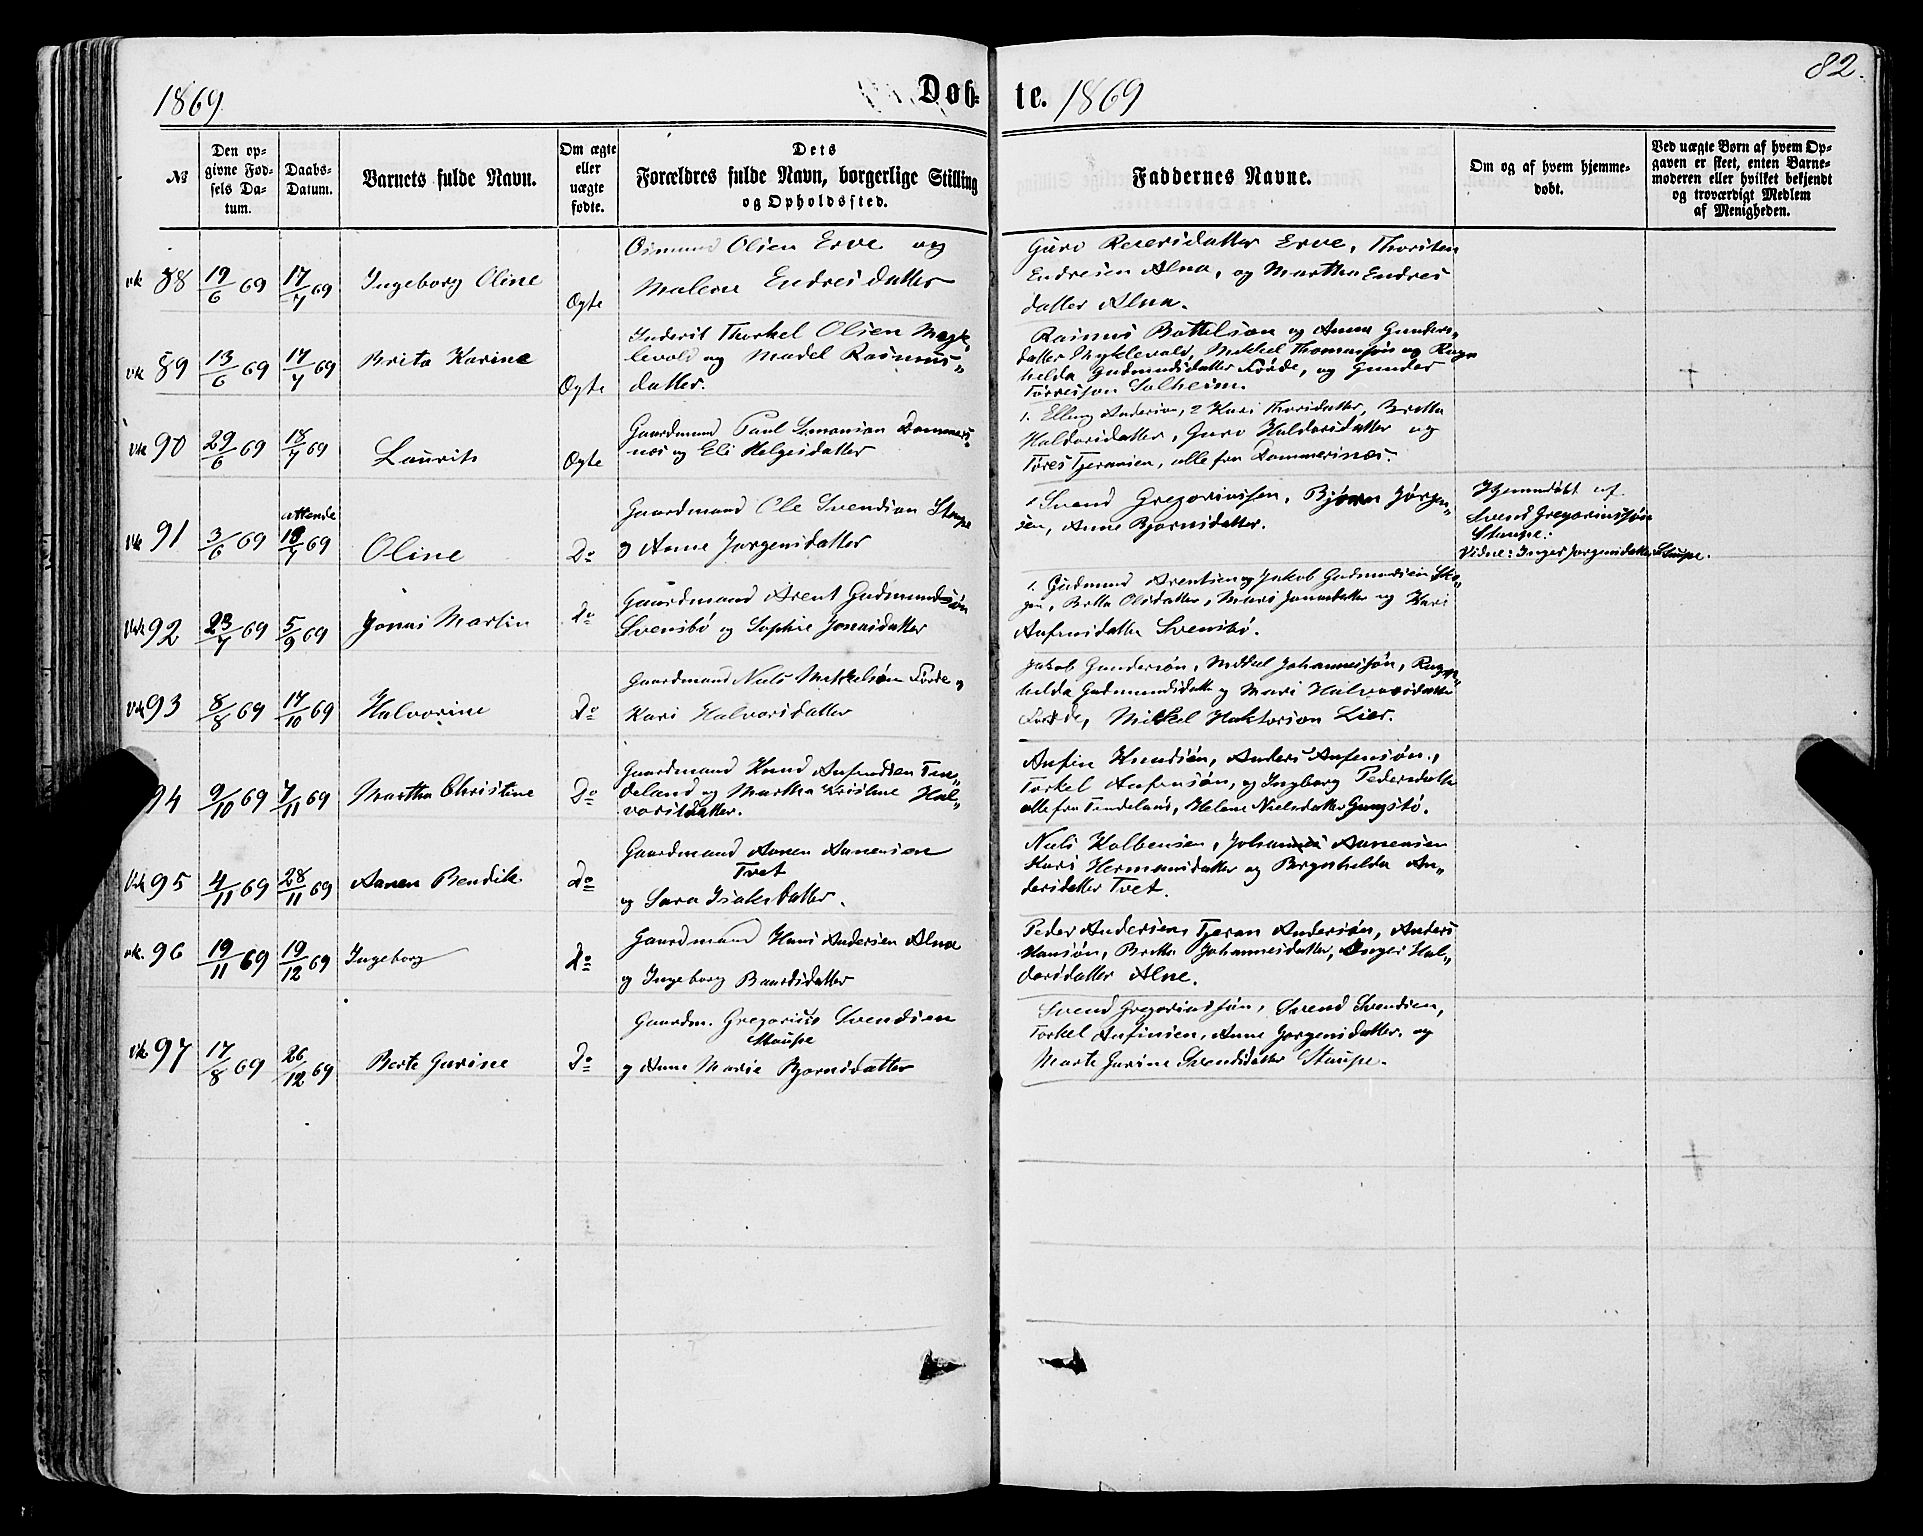 82.
1869
Døb-
te.
1869
№
Den op-
givne Fød-
sels Da-
tum.
Daabs-
Datum.
Barnets fulde Navn.
Om ægte
eller
uægte
fødte.
Dets
Forældres fulde Navn, borgerlige Stilling
og Opholdssted.
Faddernes Navne.
Om og af hvem hjemme-
døbt.
Ved uægte Børn af hvem Op-
gaven er skeet, enten Barne-
moderen eller hvilket bekjendt
og troværdigt Medlem
af Menigheden.
vk 88 19/6 69 17/7 69 Ingeborg Oline Ægte
Osmund Olsen Erve og
Malene Endresdatter
Guro Reiersdatter Erve, Thorsten
Endresen Alna, og Martha Endres
datter Alna.
vk 89 13/6 69 17/7 69 Brita Karine Ægte
Inderst Thorkel Olsen Myk-
levold og Madel Rasmus-
datter.
Rasmus Bottelson og Anna Gunders-
datter Myklevold, Mikkel Thomassøn og Ragn
helda Gudmundsdatter Førde, og Gunder
Tørresson Solheim.
Vk 90 29/6 69 18/7 69 Laurits Ægte
Gaardmand Paul Simonsen Dommers-
næs og Eli Helgesdatter
1. Elling Andersen, 2 Kari Thorsdatter, Britha
Haldorsdatter, Guro Haldorsdatter og
Tøres Tjeransen, alle fra Dommersnæs.
Vk 91 3/6 69 attende 18/7 69 Oline Do
Gaardmand Ole Svendsen Staupe
og Anne Jørgensdatter
1. Svend Gregoriussen, Bjørn Jørgen-
sen, Anne Bjørnsdatter.
Hjemmdøbt af
Svend Gregoriussøn
Staupe.
Vidne: Inger Jørgensdatter Staupe.
Vk 92 23/7 69 5/9 69 Jonas Martin Do
Gaardmand Arent Gudmundsøn
Svensbø og Sophie Jonasdatter
1. Gudmund Arentsen og Jakob Gudmundsen
Britta Olsdatter, Mari Jonasdatter og Kari
Anfinsdatter Svensbø.
Vk 93 8/8 69 17/10 69 Halvorine Do
Gaardmand Nils Mikkelsøn Førde og
Kari Halvorsdatter
Jakob Gundersøn, Mikkel Johannessøn, Ragn-
helda Gudmundsdatter og Mari Halvorsdatter
Førde, Mikkel Haktorson Lier.
94 9/10 69 7/11 69 Martha Christine Do
Gaardmand Knud Anfindsen Tin-
deland og Martha Kristine Hal-
vorsdatter.
Anfin Knudsøn, Anders Anfinsøn,
Torkel Anfinsøn, og Ingborg Pedersdatter
alle fra Tindeland, Helene Nielsdatter Gungstø.
Vk 95 4/11 69 28/11 69 Aanen Bendik Do
Gaardmand Aanen Aanensen
Tvet
og Sara Isaksdatter.
Nils Kolbensen, Johannes Aanensen
Kari Hermansdatter og Brynhelda An-
dersdatter Tvet.
vk. 96 19/11 69 19/12 69 Ingeborg Do
Gaardmand Hans Andersen Alna
og Ingeborg Baardsdatter
Peder Andersen, Tjeran Andersøn, Anders
Hansøn, Britta Johannesdatter, Inger Hal-
dorsdatter Alne.
vk 97 17/8 69 26/12 69 Berte Gurine Do
Gaardm. Gregorius Svendsen
Staupe
og Anne Marie Bjørnsdatter
Svend Gregoriussøn, Svend Svendsen,
Torkel Anfinsen, Anne Jørgensdatter og
Marte Gurine Svendsdatter Staupe.